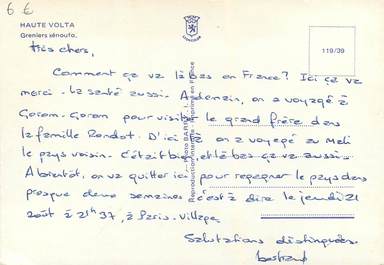 6 €
HAUTE VOLTA
Greniers sénoufo.
119/39
Très chers,
Comment ça va là bas en France? Ici ça va
merci. La santé aussi. A demain, on a voyagé à
Gorom-Gorom pour visiter le grand frère dans
la famille Rondot. D'ici là on a voyagé au Mali
le pays voisin. C'était bien, et là bas ça va aussi.
A bientôt, on va quitter ici pour regagner le pays dans
presque deux semaines c'est à dire le jeudi 21
août à 21h37, à Paris-Villepa
Salutations distinguées.
bertrand
Reproduction interdite - Imprimé en France